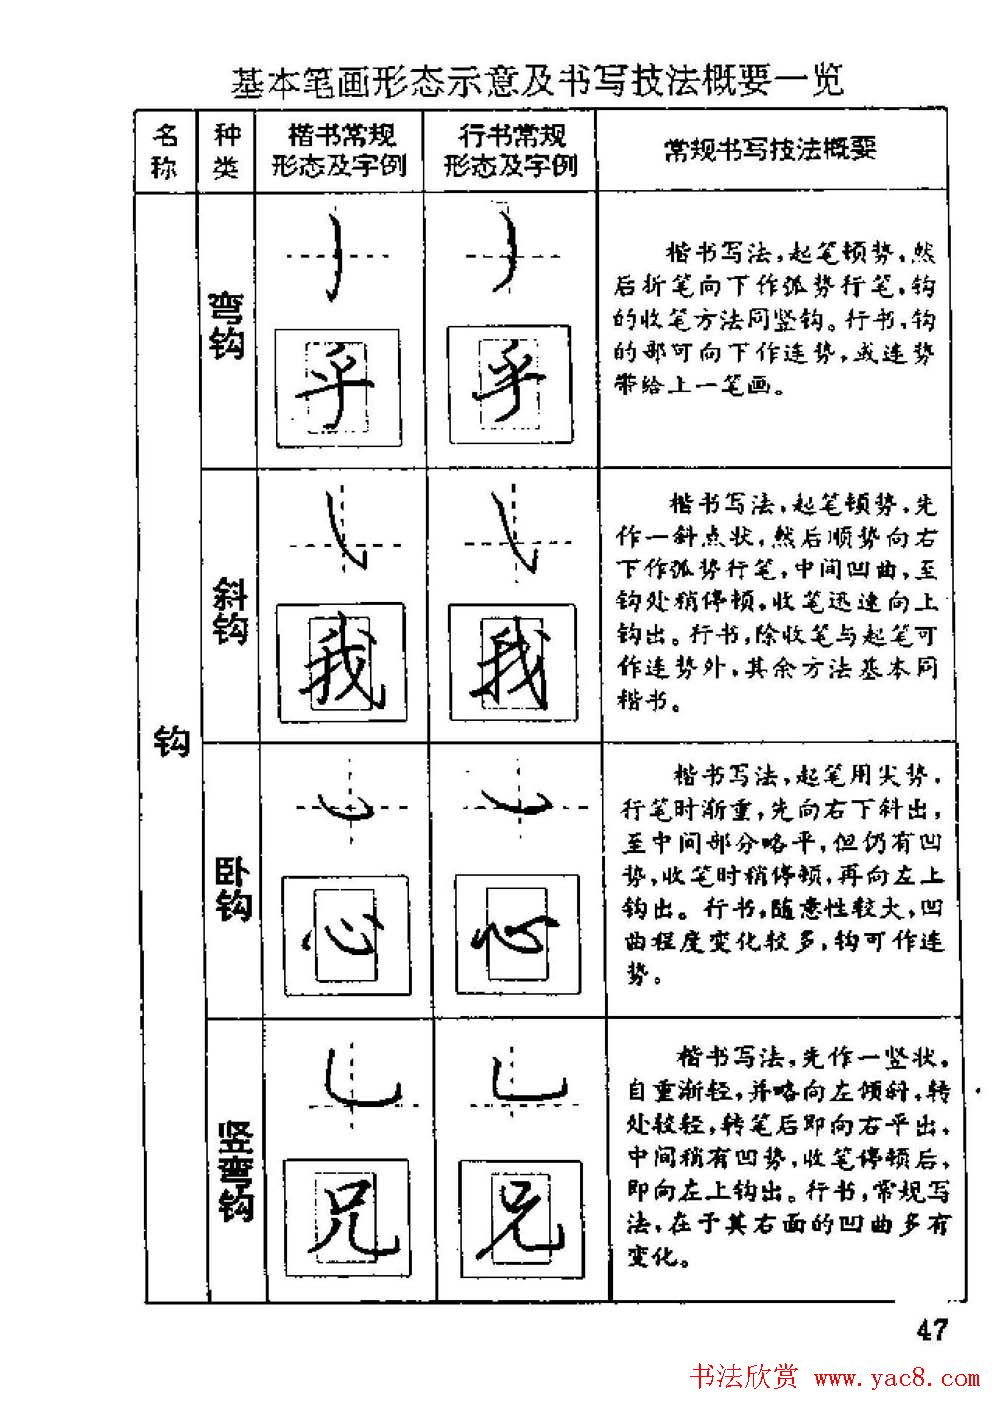 基本笔画形态示意及书写技法概要一览
名称
种类
楷书常规
形态及字例
行书常规
形态及字例
常规书写技法概要
钩
弯钩
乎
乎
楷书写法，起笔顿势，然
后折笔向下作弧势行笔，钩
的收笔方法同竖钩。行书，钩
的部可向下作连势，或连势
带给上一笔画。
斜钩
我
我
楷书写法，起笔顿势，先
作一斜点状，然后顺势向右
下作弧势行笔，中间凹曲，至
钩处稍停顿，收笔迅速向上
钩出。行书，除收笔与起笔可
作连势外，其余方法基本同
楷书。
卧钩
心
心
楷书写法，起笔用尖势，
行笔时渐重，先向右下斜出，
至中间部分略平，但仍有凹
势，收笔时稍停顿，再向左上
钩出。行书，随意性较大，凹
曲程度变化较多，钩可作连
势。
竖弯钩
兄
兄
楷书写法，先作一竖状，
自重渐轻，并略向左倾斜，转
处较轻，转笔后即向右平出，
中间稍有凹势，收笔停顿后，
即向左上钩出。行书，常规写
法，在于其右面的凹曲多有
变化。
47
书法欣赏 www.yac8.com